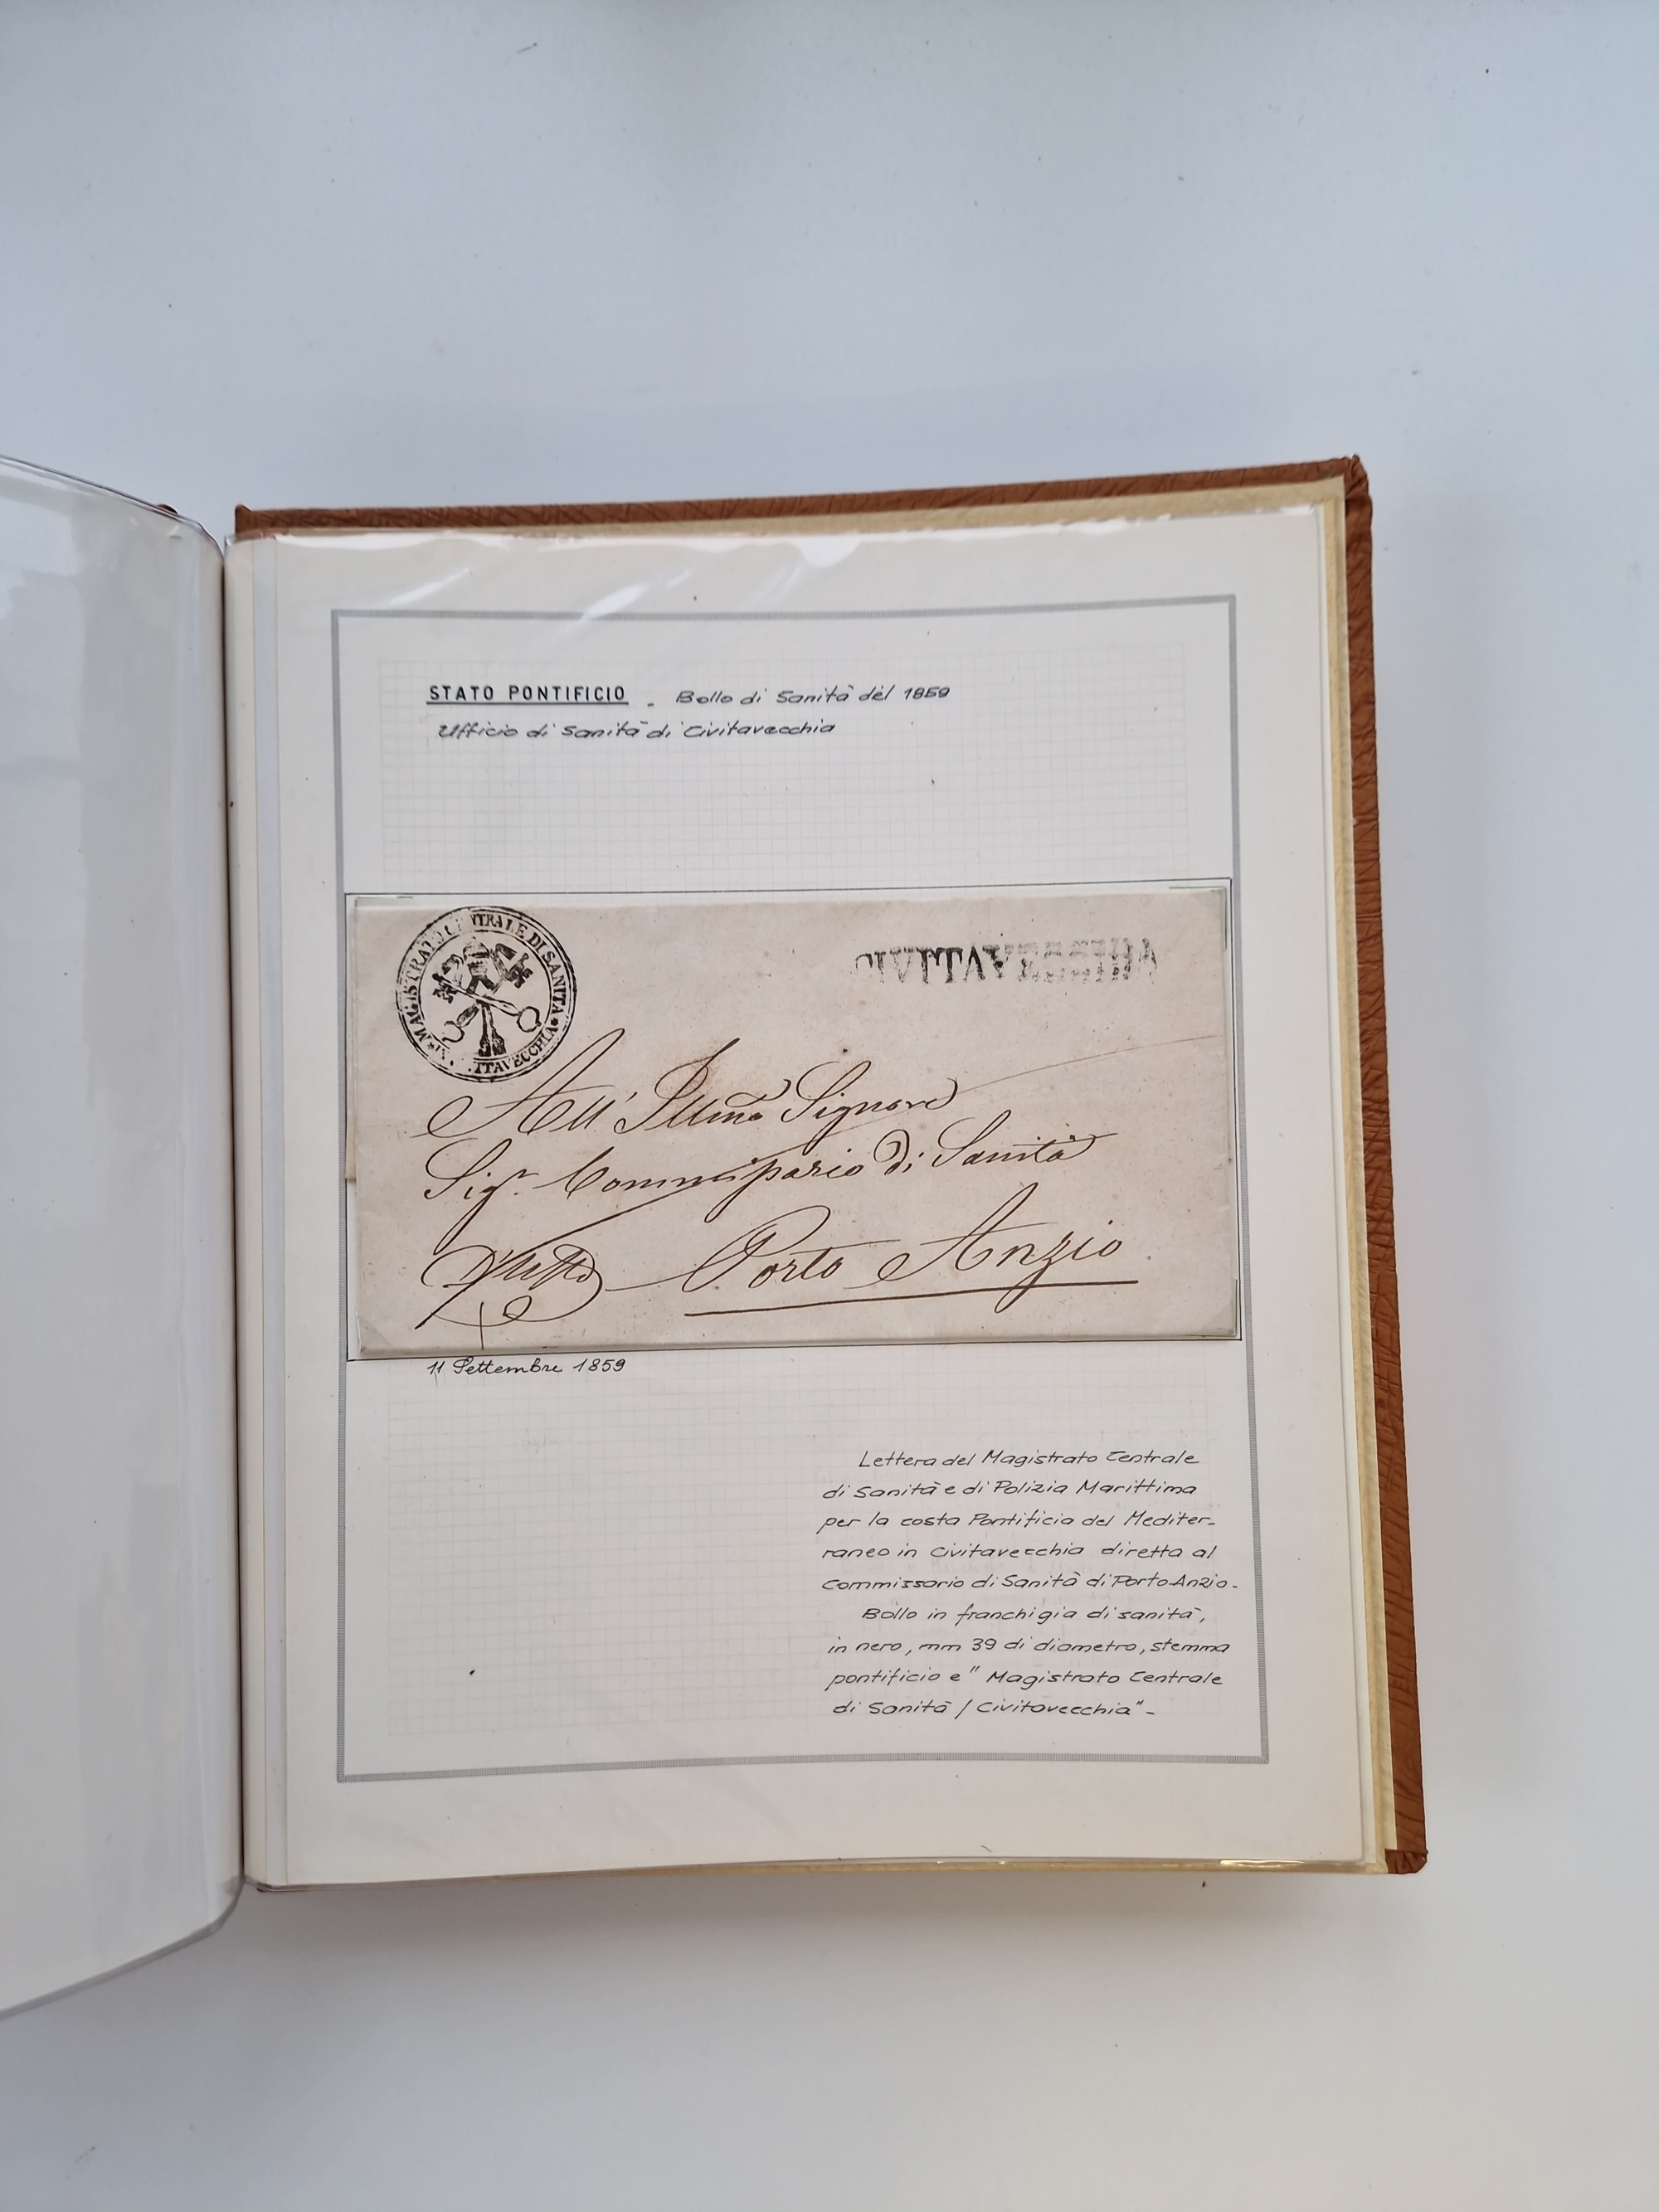 STATO PONTIFICIO - Bollo di Sanità del 1859
Ufficio di Sanità di Civitavecchia
MAGISTRATO CENTRALE DI SANITA
ITAVECCHIA
All' Illmo Signore
Sigr. Commissario di Sanità
Porto Anzio
11 Settembre 1859
Lettera del Magistrato Centrale
di Sanità e di Polizia Marittima
per la costa Pontificia del Mediter-
raneo in Civitavecchia diretta al
Commissario di Sanità di Porto Anzio.
Bollo in franchigia di sanità,
in nero, mm 39 di diametro, stemma
pontificio e " Magistrato Centrale
di Sanità / Civitavecchia" -